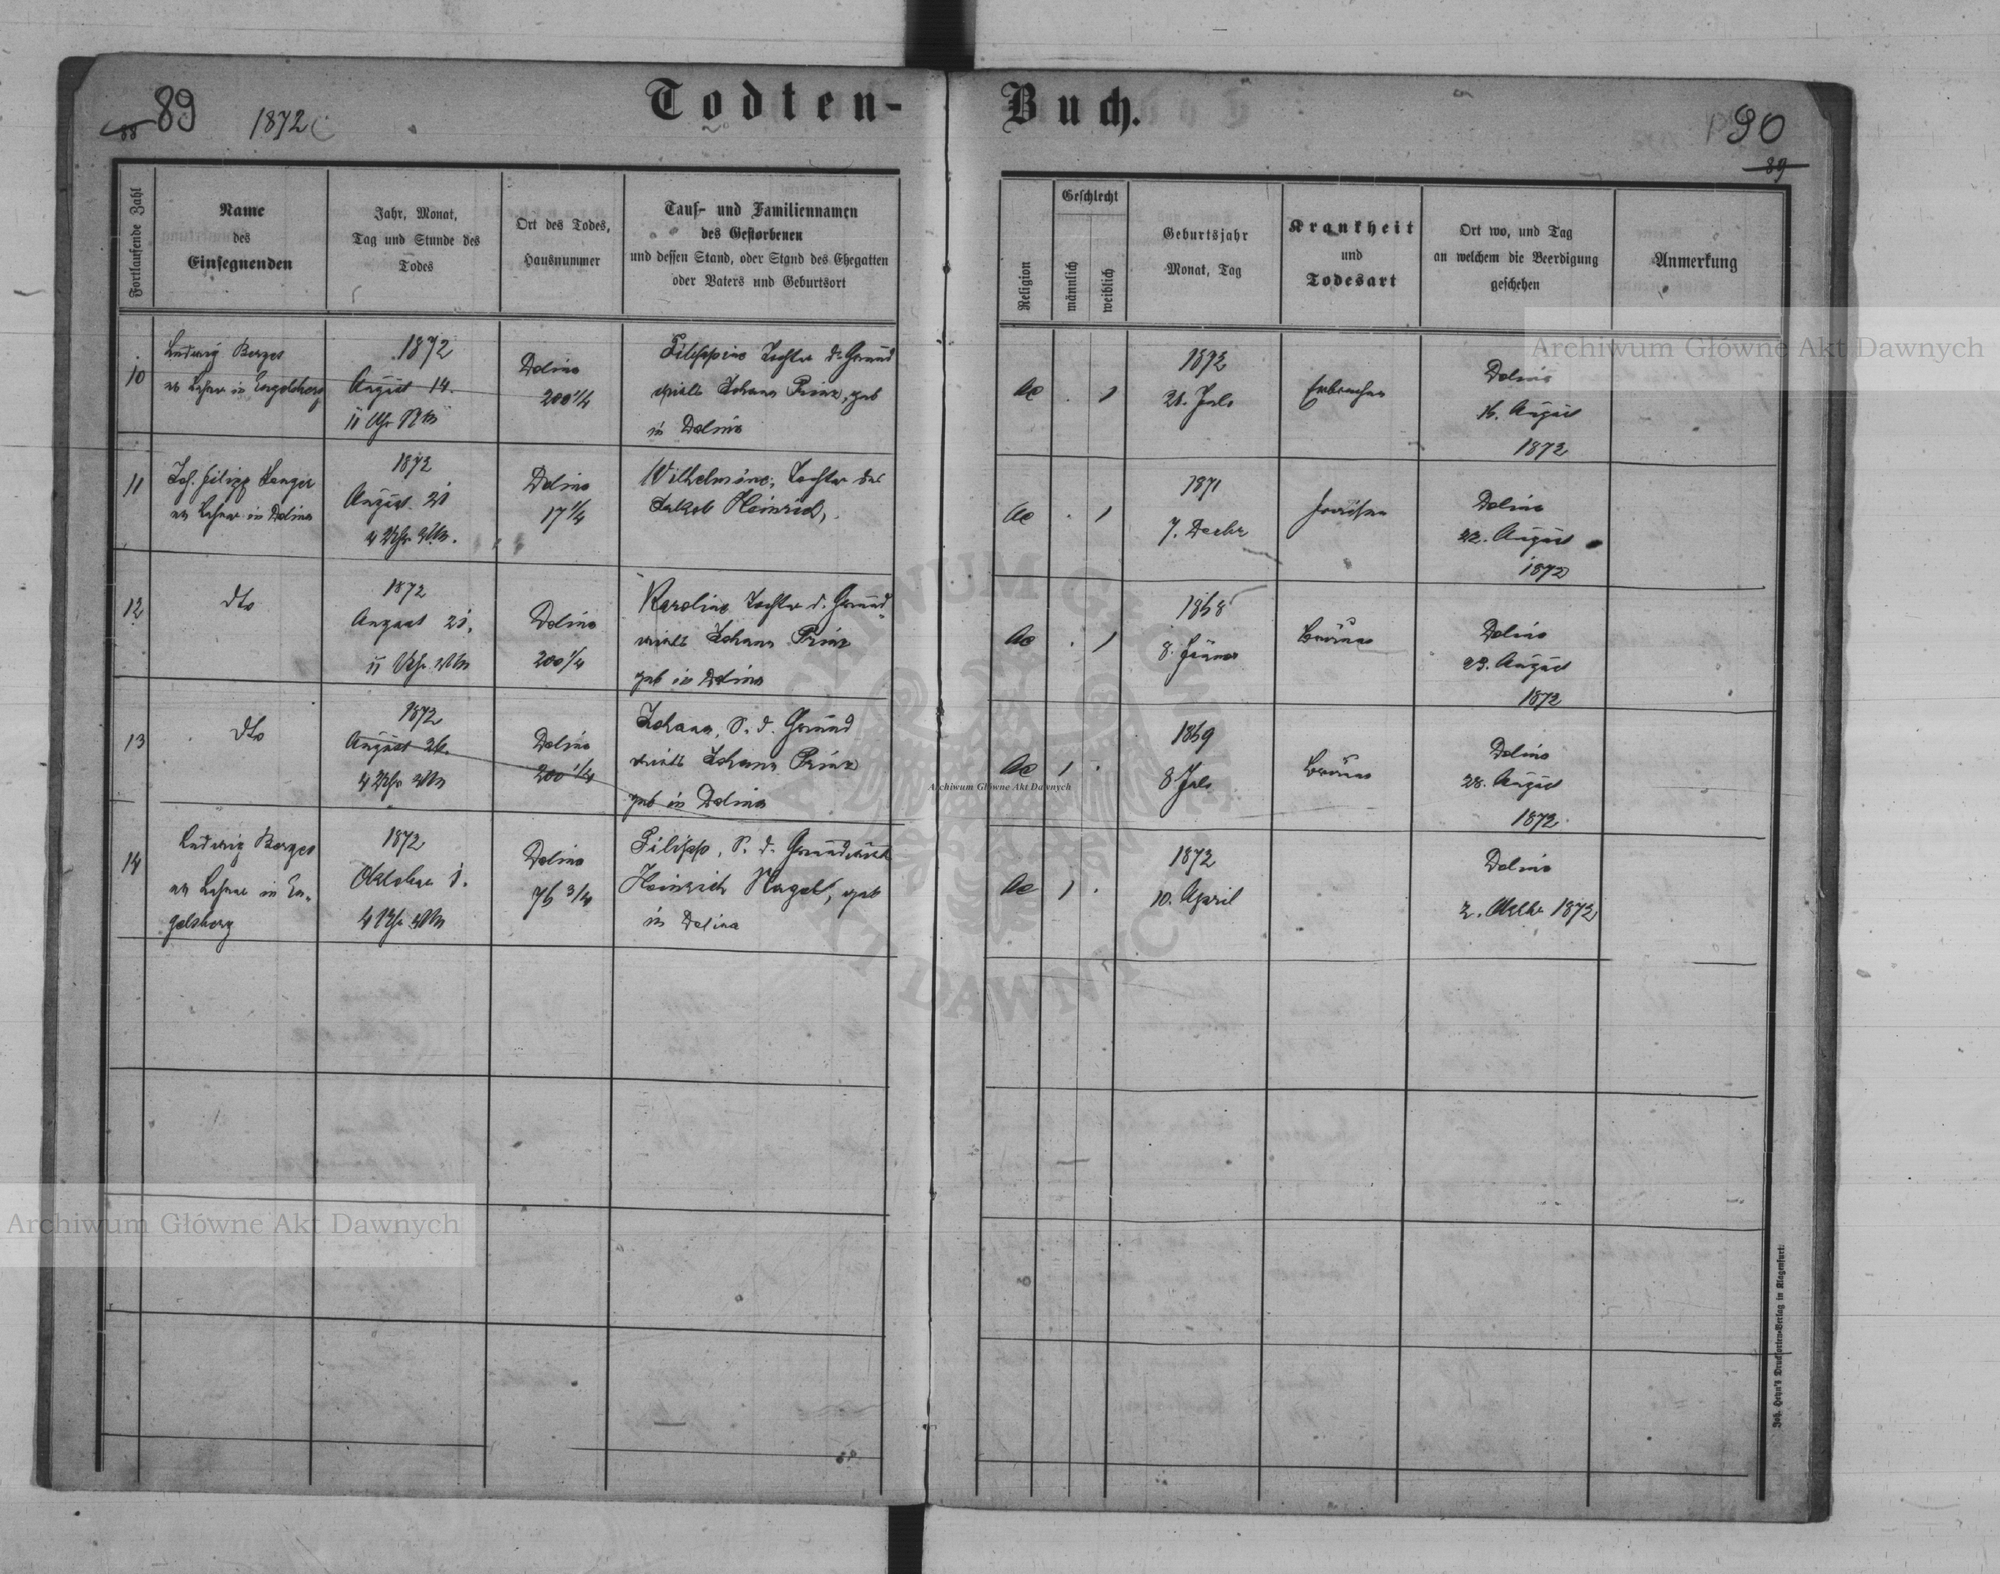 89
88
1872
Todten-
Buch.
90
89
Fortlaufende Zahl
Name
des
Einsegnenden
Jahr, Monat,
Tag und Stunde des
Todes
Ort des Todes,
Hausnummer
Tauf- und Familiennamen
des Gestorbenen
und dessen Stand, oder Stand des Ehegatten
oder Vaters und Geburtsort
Religion
Geschlecht
männlich
weiblich
Geburtsjahr
Monat, Tag
Krankheit
und
Todesart
Ort wo, und Tag
an welchem die Beerdigung
geschehen
Anmerkung
10
Ludwig Berges
Lehrer in Engelsberg
1872
August 14.
11 Uhr
Dolina
200 1/4
Filippine Tochter d. Grund
wirth Johann Prinz, geb
in Dolina
1
21. Juli
Erbrechen
Dolina
16. August
1872
11
Joh. Filipp
Lehrer in Dolina
1872
August 21
4 Uhr
Dolina
17 1/4
Wilhelmine, Tochter des
Jakob Heinrich,
1
1871
7. Decbr
Dolina
22. August
1872
12
dto
1872
August 21.
11 Uhr
Dolina
200 1/4
Karoline Tochter d. Grund
wirth Johann Prinz
geb in Dolina
1
1868
8. Jänner
Bräune
Dolina
23. August
1872
13
dto
1872
August 26.
4 Uhr
Dolina
200 1/4
Johann, S. d. Grund
wirth Johann Prinz
geb in Dolina
1
1869
8 Juli
Bräune
Dolina
28. August
1872
14
Ludwig Berges
Lehrer in En-
gelsberg
1872
Oktober 1.
4 Uhr
Dolina
76 3/4
Filipp, S. d. Grundwirth
Heinrich Nagel, geb
in Dolina
1
1872
10. April
Dolina
2. Oktbr 1872
Joh. Heyn's Drucksorten-Verlag in Klagenfurt.
Archiwum Główne Akt Dawnych
Archiwum Główne Akt Dawnych
Archiwum Główne Akt Dawnych
ARCHIWUM GŁÓWNE AKT DAWNYCH